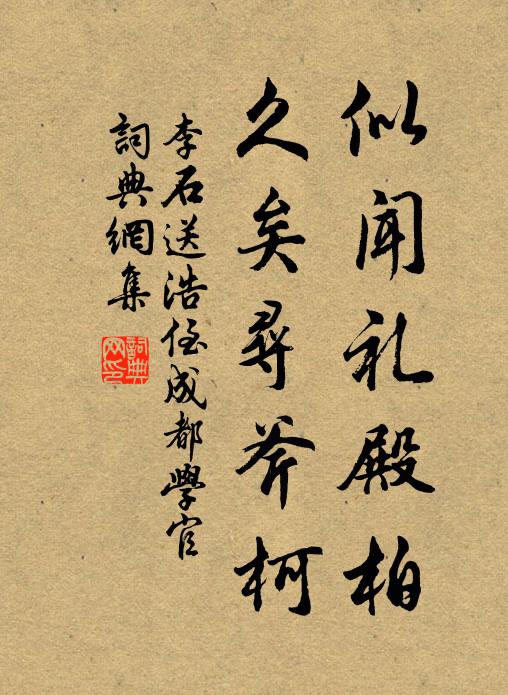 似闻礼殿柏
久矣寻斧柯
李石送浩侄成都學官
詞典網集
詞典網印